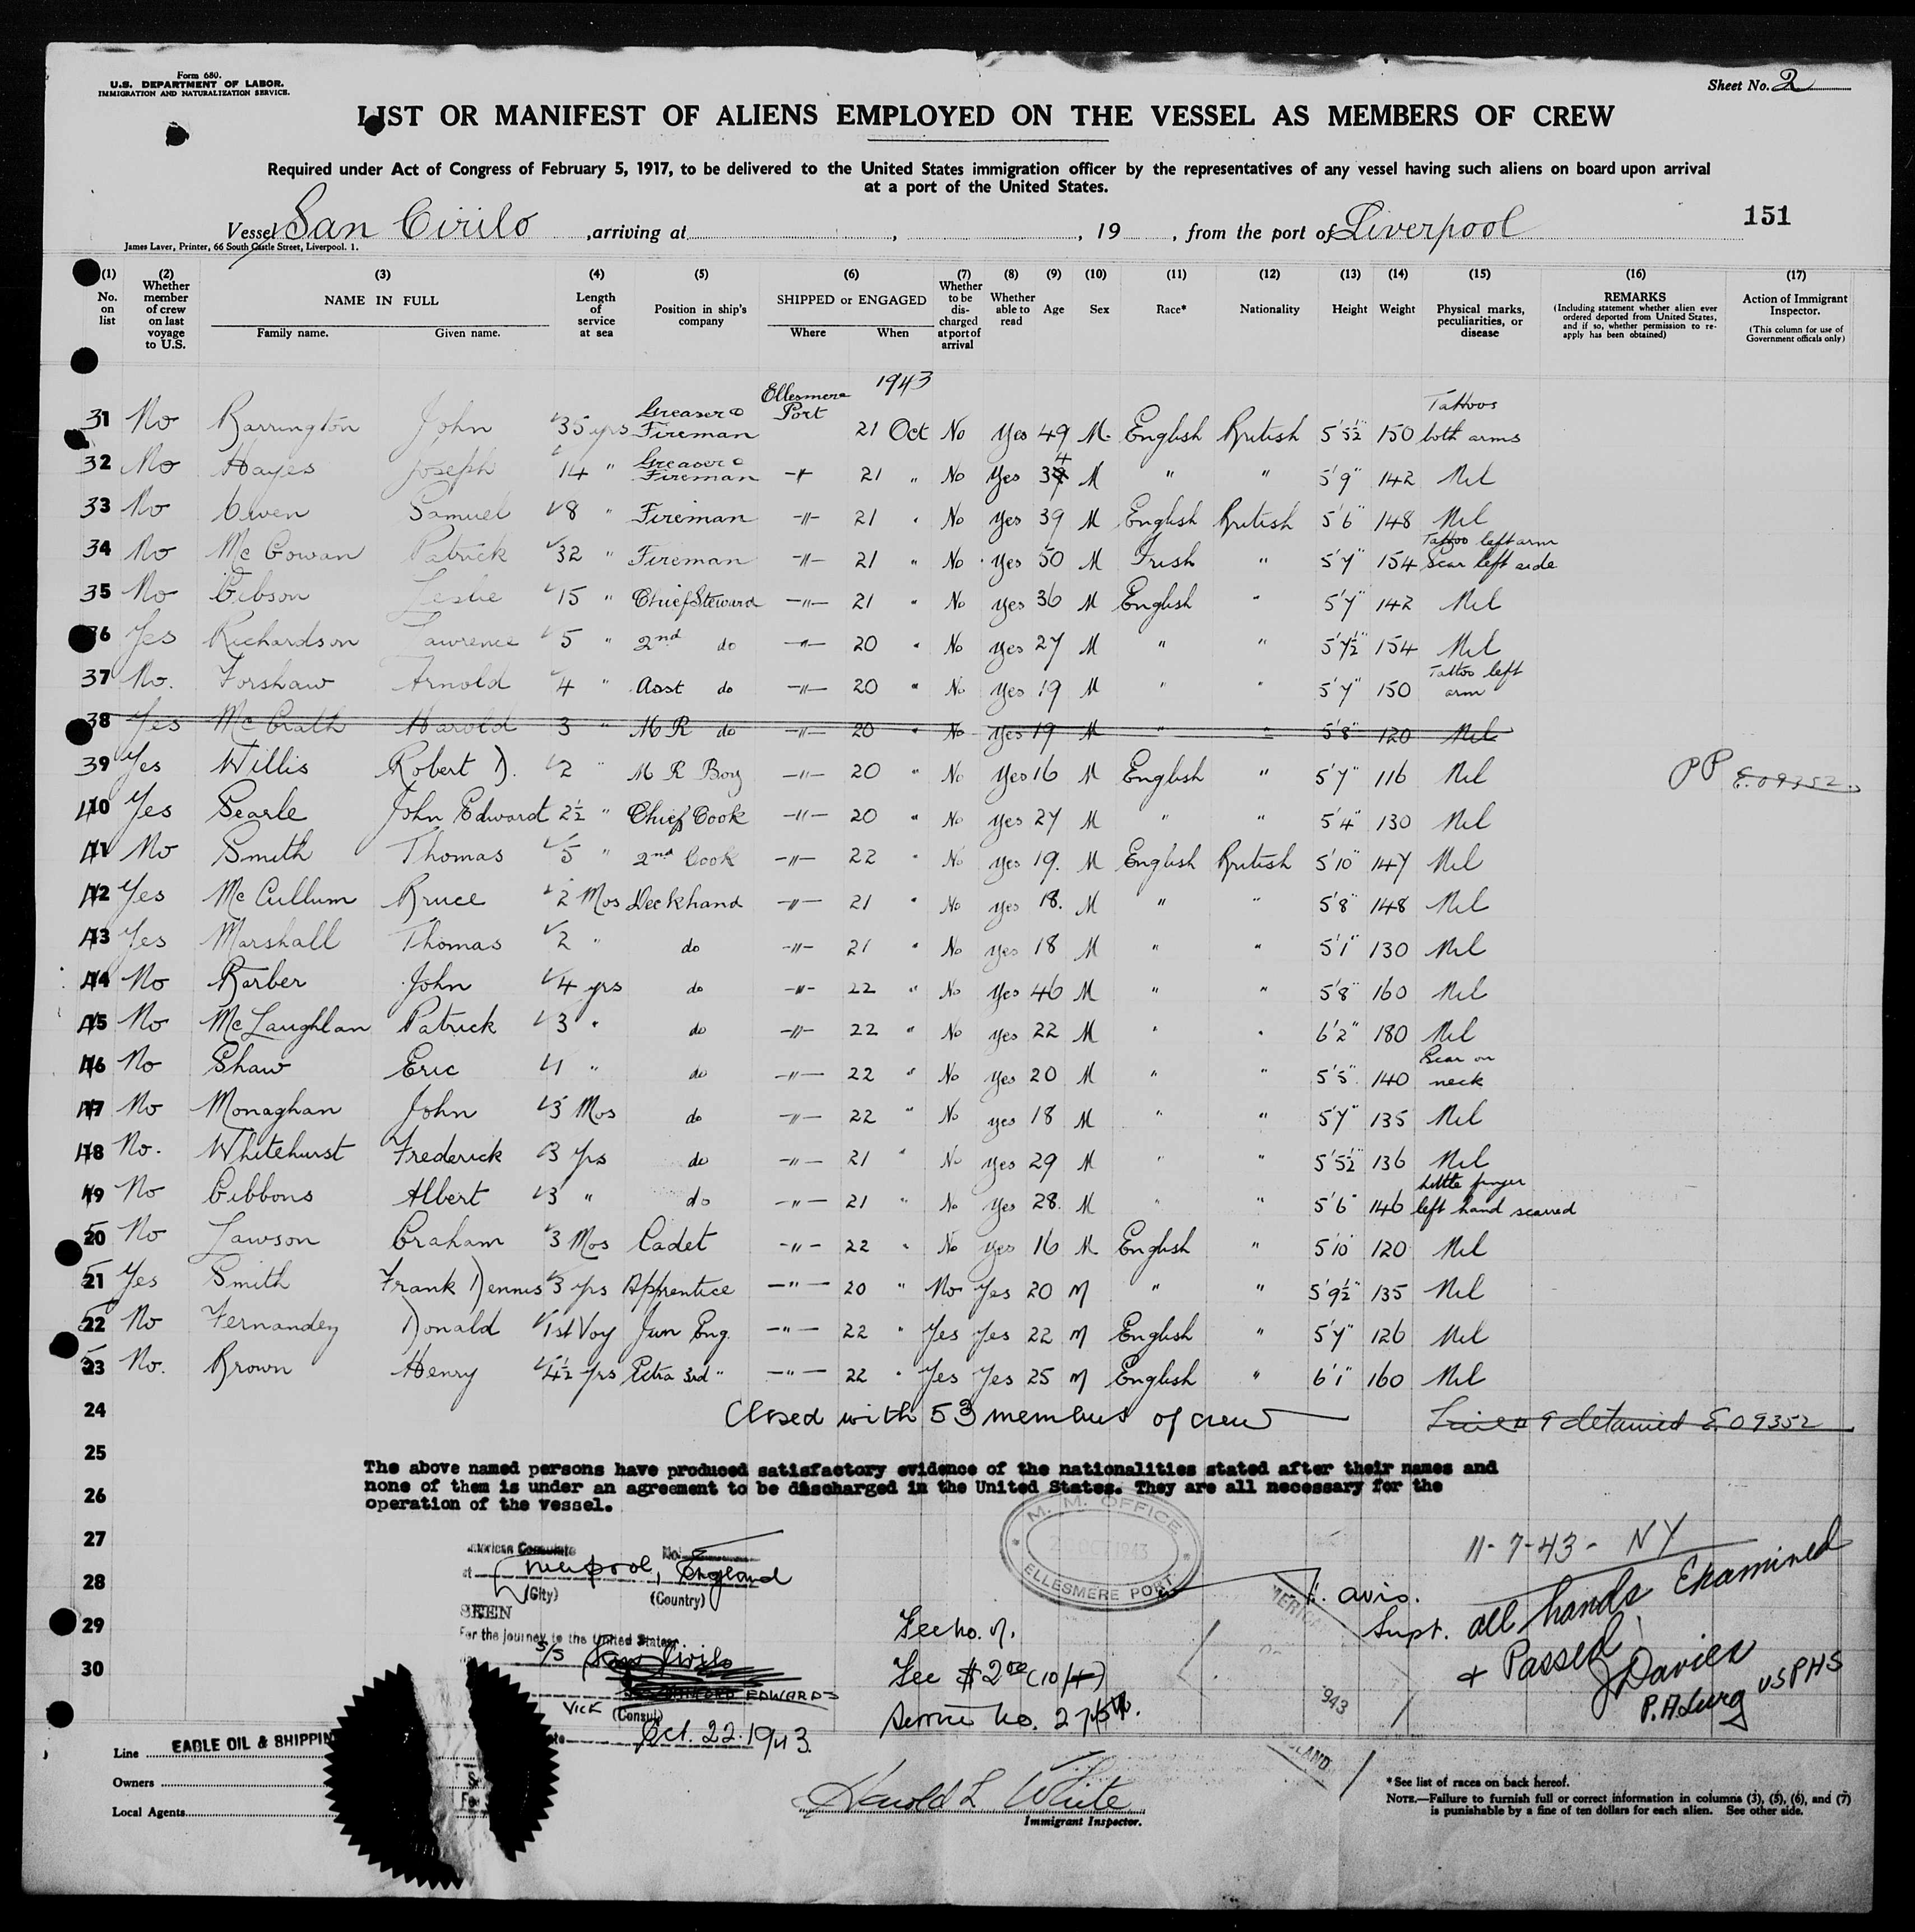 Form 680.
U.S. DEPARTMENT OF LABOR.
IMMIGRATION AND NATURALIZATION SERVICE.
Sheet No. 2
LIST OR MANIFEST OF ALIENS EMPLOYED ON THE VESSEL AS MEMBERS OF CREW
Required under Act of Congress of February 5, 1917, to be delivered to the United States immigration officer by the representatives of any vessel having such aliens on board upon arrival
at a port of the United States.
Vessel San Cirilo , arriving at , , 19 , from the port of Liverpool 151
James Laver, Printer, 66 South Castle Street, Liverpool. 1.
(1) No. on list
(2) Whether member of crew on last voyage to U.S.
(3) NAME IN FULL Family name. Given name.
(4) Length of service at sea
(5) Position in ship's company
(6) SHIPPED or ENGAGED Where When
(7) Whether to be discharged at port of arrival
(8) Whether able to read
(9) Age
(10) Sex
(11) Race*
(12) Nationality
(13) Height
(14) Weight
(15) Physical marks, peculiarities, or disease
(16) REMARKS (Including statement whether alien ever ordered deported from United States, and if so, whether permission to re-apply has been obtained)
(17) Action of Immigrant Inspector. (This column for use of Government officials only)
1943
31 No Barrington John 35 yrs Greaser & Fireman Ellesmere Port 21 Oct No Yes 49 M. English British 5'5½" 150 Tattoos both arms
32 No Hayes Joseph 14 " Greaser & Fireman -"- 21 " No Yes 34 M " " 5'9" 142 Nil
33 No Owen Samuel 8 " Fireman -"- 21 " No Yes 39 M English British 5'6" 148 Nil
34 No McGowan Patrick 32 " Fireman -"- 21 " No Yes 50 M Irish " 5'7" 154 Tattoo left arm Scar left side
35 No Gibson Leslie 15 " Chief Steward -"- 21 " No Yes 36 M English " 5'7" 142 Nil
36 Yes Richardson Lawrence 5 " 2nd do -"- 20 " No Yes 27 M " " 5'7½" 154 Nil
37 No. Forshaw Arnold 4 " Asst do -"- 20 " No Yes 19 M " " 5'7" 150 Tattoo left arm
38 Yes McGrath Harold 3 " M R do -"- 20 " No Yes 19 M " " 5'8" 120 Nil
39 Yes Willis Robert D. 2 " M R Boy -"- 20 " No Yes 16 M English " 5'7" 116 Nil PP E.09352
40 Yes Searle John Edward 2½ " Chief Cook -"- 20 " No Yes 27 M " " 5'4" 130 Nil
41 No Smith Thomas 5 " 2nd Cook -"- 22 " No Yes 19. M English British 5'10" 147 Nil
42 Yes McCullum Bruce 2 Mos Deckhand -"- 21 " No Yes 18. M " " 5'8" 148 Nil
43 Yes Marshall Thomas 2 " do -"- 21 " No Yes 18 M " " 5'1" 130 Nil
44 No Barber John 4 yrs do -"- 22 " No Yes 46 M " " 5'8" 160 Nil
45 No McLaughlan Patrick 3 " do -"- 22 " No Yes 22 M " " 6'2" 180 Nil
46 No Shaw Eric 1 " do -"- 22 " No Yes 20 M " " 5'5" 140 Scar on neck
47 No Monaghan John 3 Mos do -"- 22 " No Yes 18 M " " 5'7" 135 Nil
48 No. Whitehurst Frederick 3 Yrs do -"- 21 " No Yes 29 M " " 5'5½" 136 Nil
49 No Gibbons Albert 3 " do -"- 21 " No Yes 28. M " " 5'6" 146 Little finger left hand scarred
50 No Lawson Graham 3 Mos Cadet -"- 22 " No Yes 16 M English " 5'10" 120 Nil
51 Yes Smith Frank Dennis 3 yrs Apprentice -"- 20 " No Yes 20 M " " 5'9½" 135 Nil
52 No Fernandez Donald 1st Voy Jun Eng. -"- 22 " Yes Yes 22 M English " 5'7" 126 Nil
53 No. Brown Henry 4½ Yrs Extra 3rd " -"- 22 " Yes Yes 25 M English " 6'1" 160 Nil
24 Closed with 53 members of crew Line # 9 detained E.09352
25
The above named persons have produced satisfactory evidence of the nationalities stated after their names and
26 none of them is under an agreement to be discharged in the United States. They are all necessary for the
operation of the vessel.
27
28
29
30
M. M. OFFICE
OCT 1943
ELLESMERE PORT
American Consulate No.
at Liverpool, England
(City) (Country)
SEEN
For the journey to the United States
S/S San Cirilo
EDWARDS
VICE (Consul)
Oct. 22. 1943.
Fee No. 7.
Fee $2.00 (10/4)
Service No.
Supt.
943
11-7-43 - NY
all hands Examined
+ Passed
J Davies
P.A. Surg USPHS
Line EAGLE OIL & SHIPPIN
Owners
Local Agents
Harold L White
Immigrant Inspector.
*See list of races on back hereof.
NOTE.—Failure to furnish full or correct information in columns (3), (5), (6), and (7)
is punishable by a fine of ten dollars for each alien. See other side.